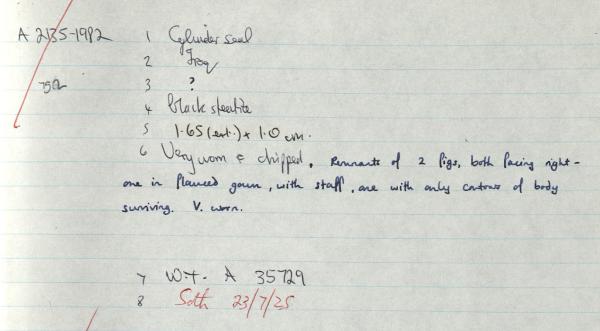 A 2135-1982 1 Cylinder seal
2 Iraq
3 ?
4 black steatite
5 1.65 (ext.) x 1.0 cm.
6 Very worn & chipped. Remnants of 2 figs, both facing right -
one in flounced gown, with staff, one with only contours of body
surviving. V. worn.
7 Wt. A 35729
8 Soth 23/7/25